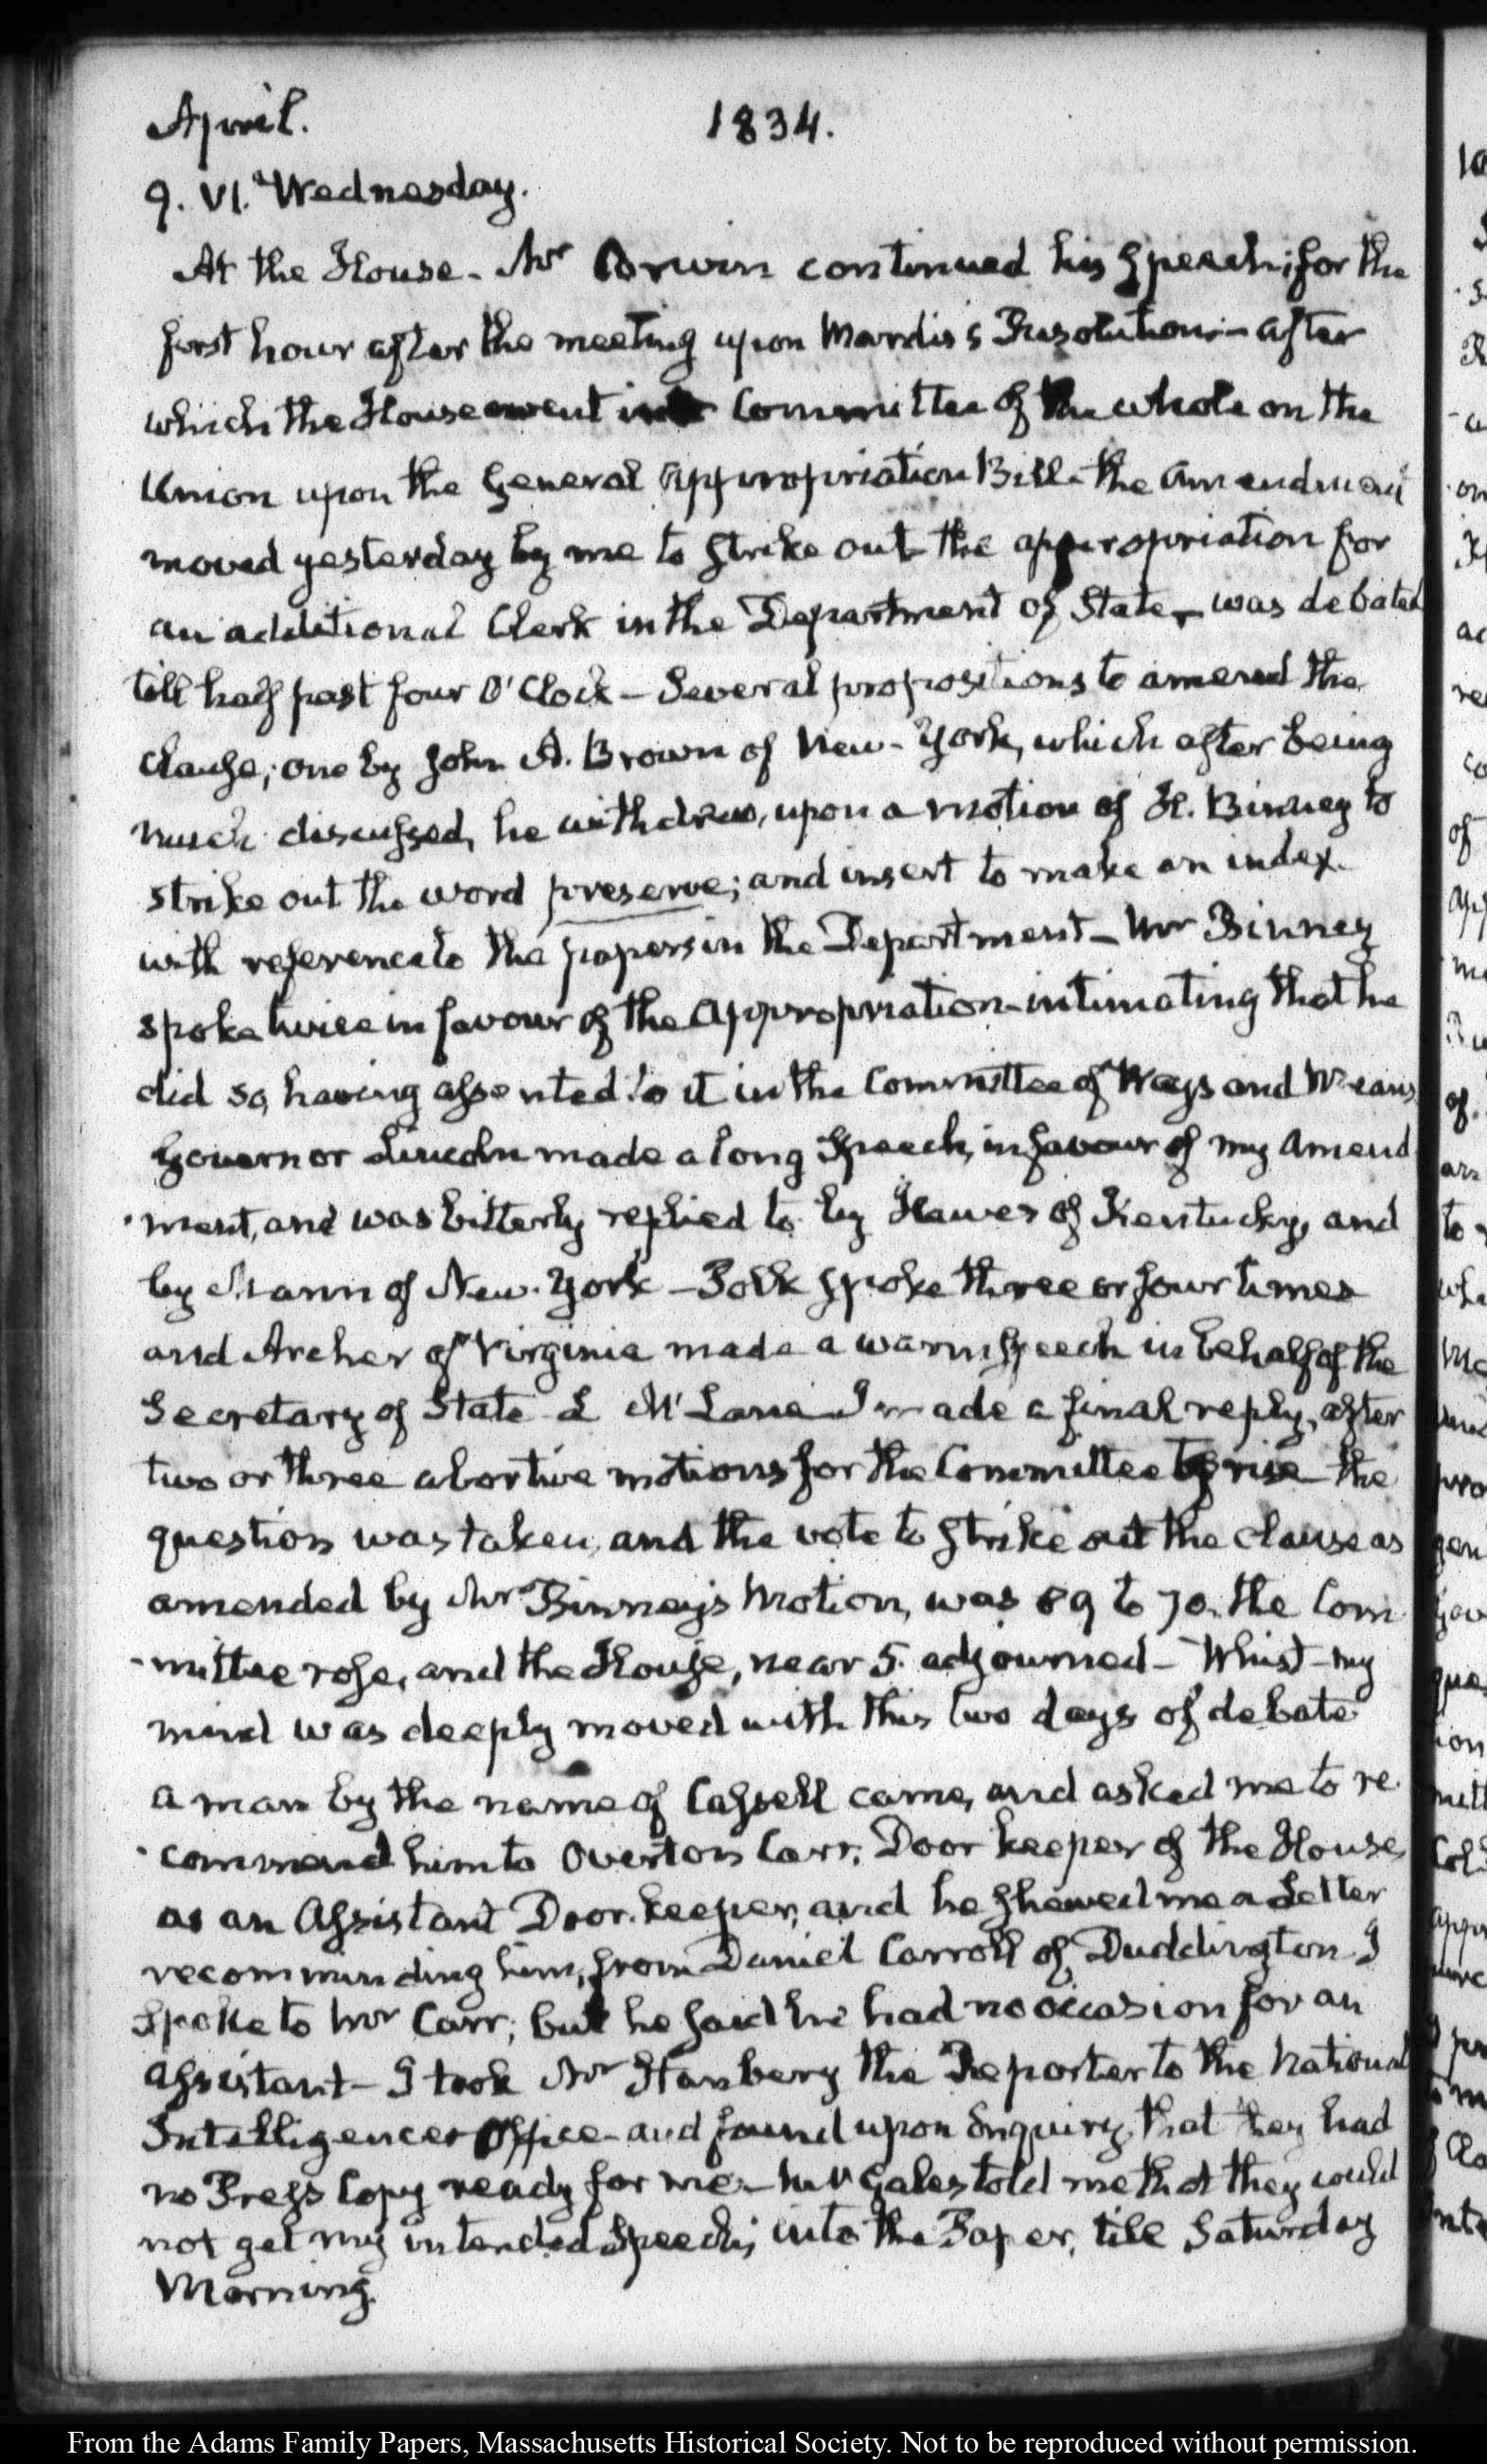 April.
1834.
9. VI. Wednesday.
At the House - Mr Corwin continued his Speech, for the
first hour after the meeting upon Mardis's Resolution - after
which the House went into Committee of the whole on the
Union upon the General appropriation Bill - the amendment
moved yesterday by me to strike out the appropriation for
an additional Clerk in the Department of State, was debated
till half past four O'Clock - Several propositions to amend the
clause; one by John A. Brown of New-York, which after being
much discussed, he withdrew, upon a motion of H. Binney to
strike out the word preserve; and insert to make an index
with reference to the papers in the Department - Mr Binney
spoke twice in favour of the appropriation - intimating that he
did so, having assented to it in the Committee of Ways and Means
Governor Lincoln made a long Speech, in favour of my amend
-ment, and was bitterly replied to by Hawes of Kentucky, and
by Mann of New-York - Polk spoke three or four times
and Archer of Virginia made a warm speech in behalf of the
Secretary of State L McLane I made a final reply, after
two or three abortive motions for the Committee to rise the
question was taken, and the vote to strike out the clause as
amended by Mr Binney's Motion, was 89 to 70. the Com
-mittee rose, and the House, near 5. adjourned - Whist - my
mind was deeply moved with this two days of debate
a man by the name of Cassell came, and asked me to re
-commend him to Overton Carr, Door keeper of the House,
as an Assistant Door-keeper, and he shewed me a Letter
recommending him, from Daniel Carroll of Duddington I
spoke to Mr Carr; but he said he had no occasion for an
assistant - I took Mr Stanbery the Reporter to the National
Intelligencer Office - and found upon Enquiry, that they had
no Press Copy ready for me - Mr Gales told me that they could
not get my intended Speech, into the Paper, till Saturday
Morning.
From the Adams Family Papers, Massachusetts Historical Society. Not to be reproduced without permission.